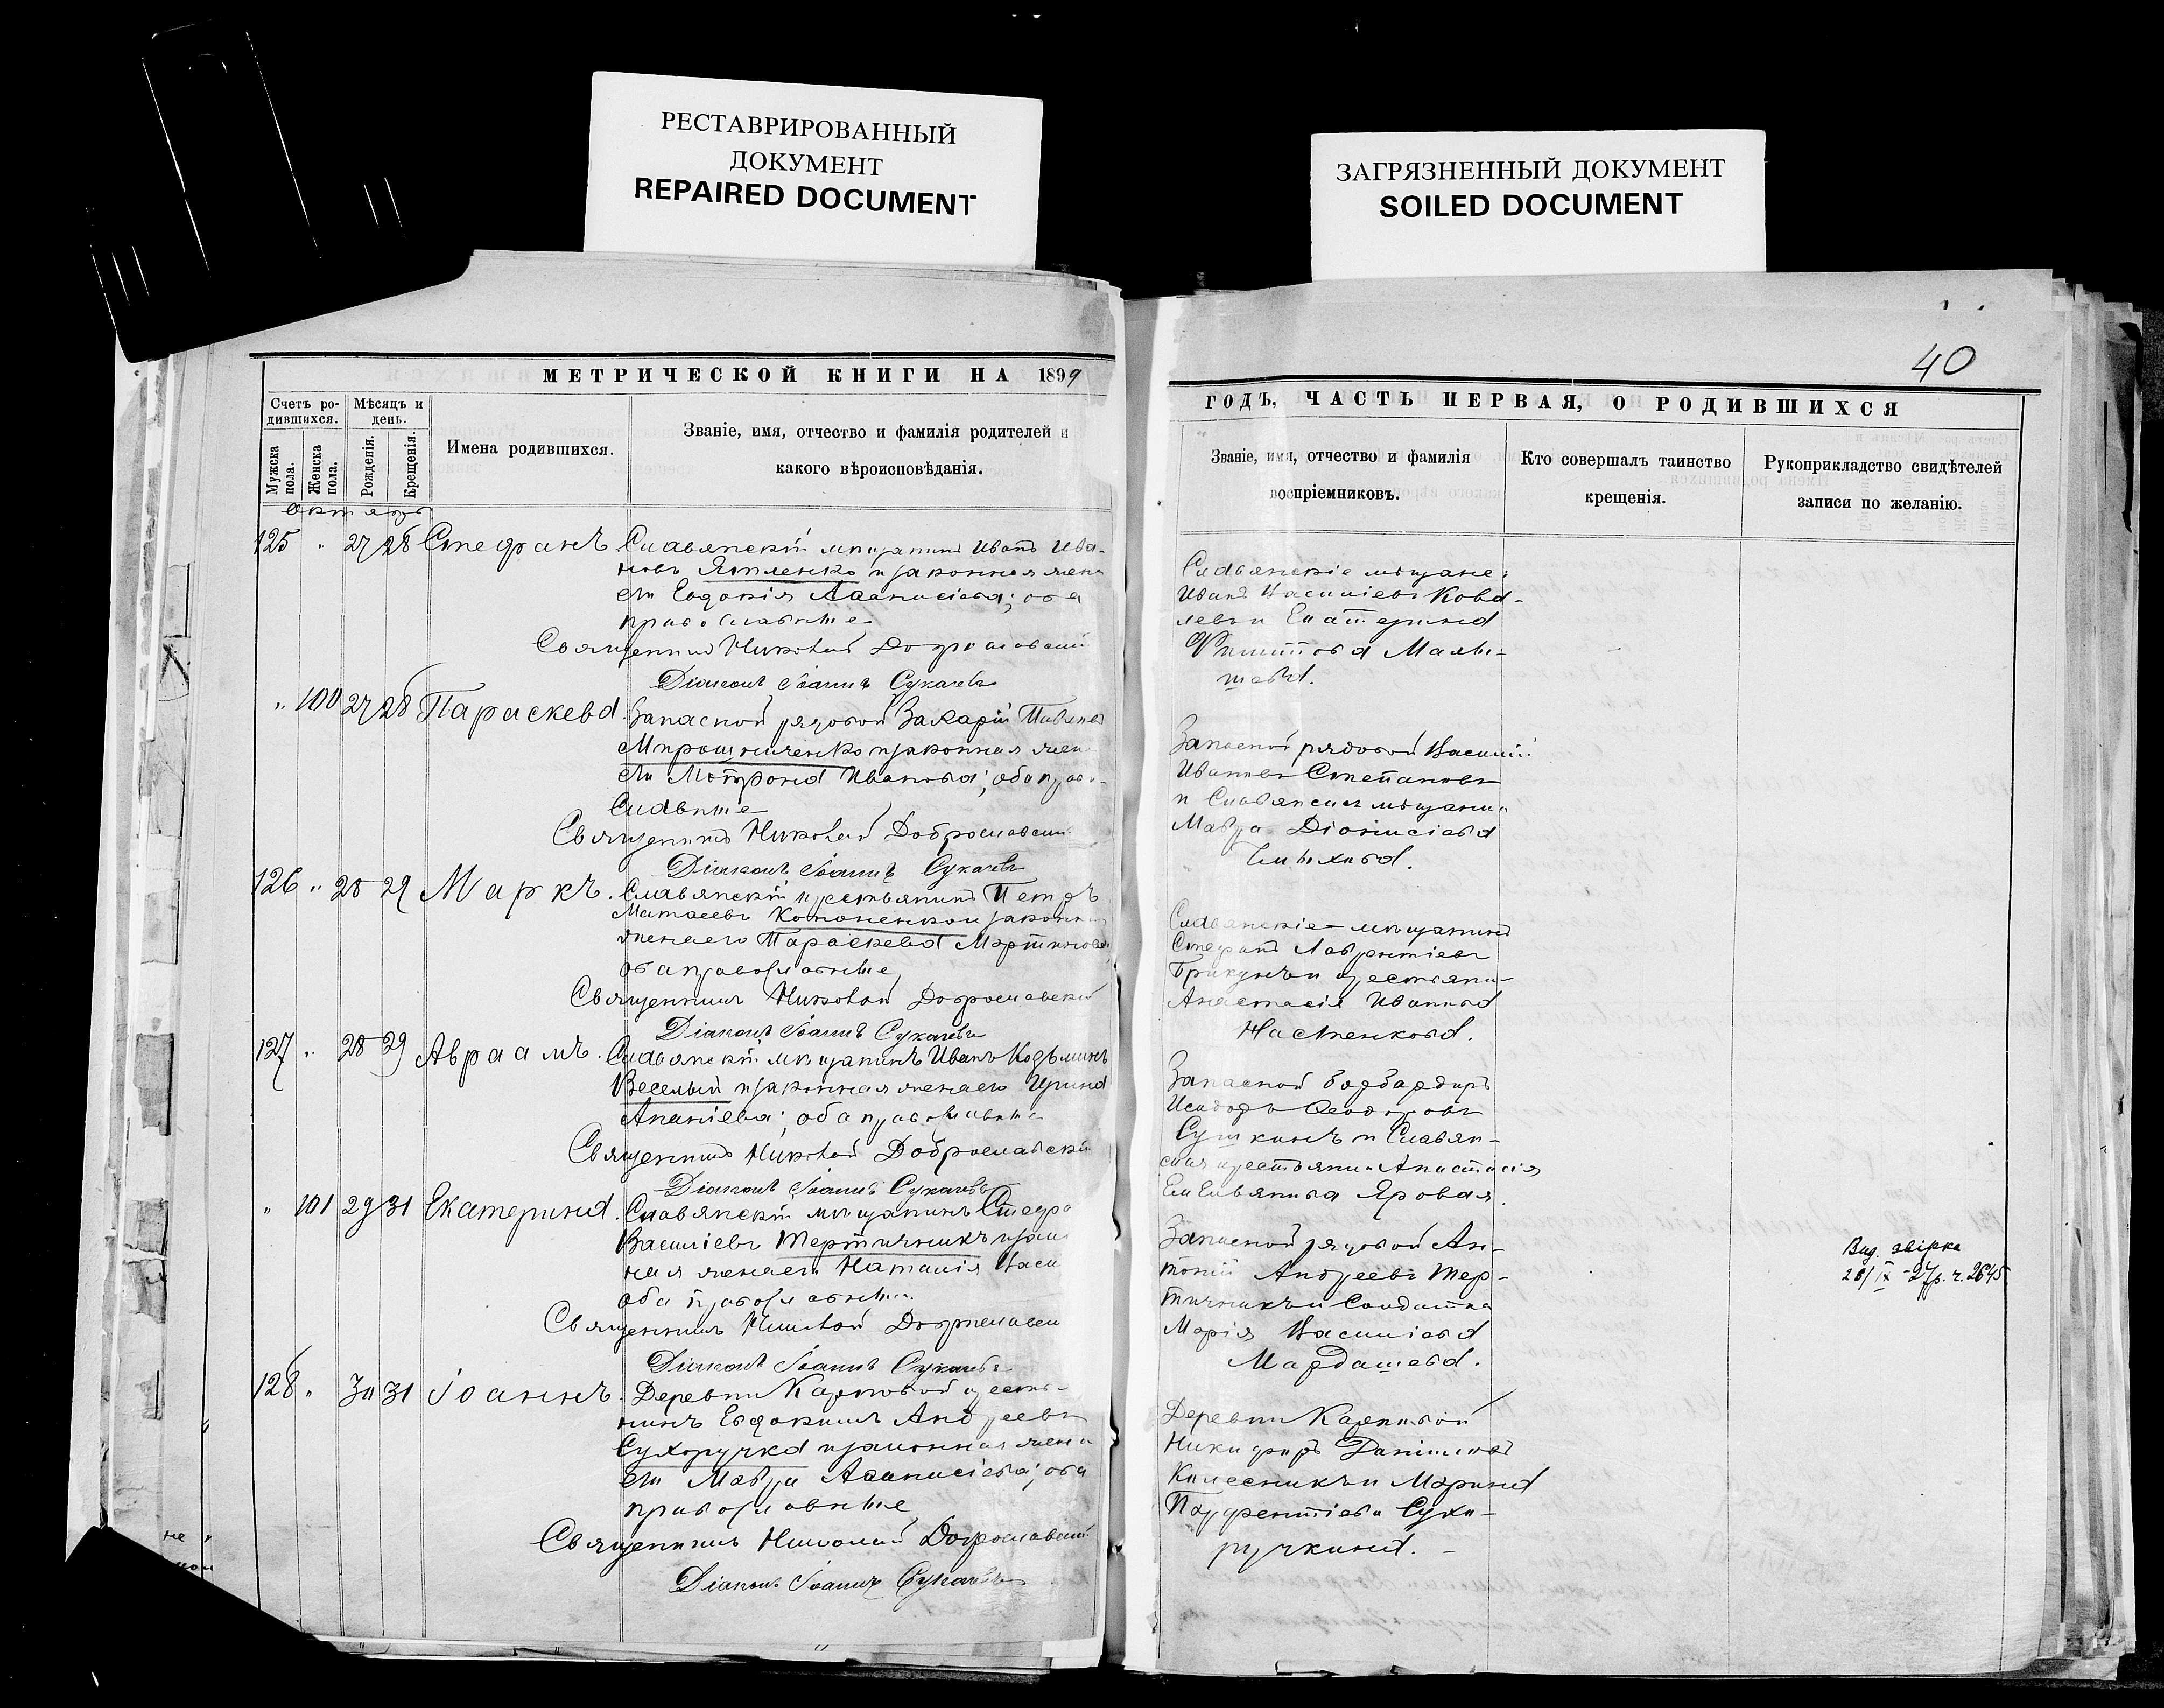 РЕСТАВРИРОВАННЫЙ
ДОКУМЕНТ
REPAIRED DOCUMENT
ЗАГРЯЗНЕННЫЙ ДОКУМЕНТ
SOILED DOCUMENT
40
МЕТРИЧЕСКОЙ КНИГИ НА 1899
Счетъ ро-
дившихся.
Мѣсяцъ и
день.
Мужска
пола.
Женска
пола.
Рожденія.
Крещенія.
Имена родившихся.
Званіе, имя, отчество и фамилія родителей и
какого вѣроисповѣданія.
Октябрь
125 " 27 28 Стефанъ Славянскій мѣщанинъ Иванъ Ива-
новъ и законная жена
его Евдокія Аѳанасіева; оба
православные
Священникъ Николай Доброславскій
Діаконъ Іоаннъ Сукачевъ
" 100 27 28 Параскева Запасной рядовой Захарій Павловъ
Мирошниченко и законная жена
его Матрона Иванова; оба право-
славные
Священникъ Николай Доброславскій
Діаконъ Іоаннъ Сукачевъ
126 " 28 29 Маркъ. Славянскій крестьянинъ Петръ
Матѳеевъ Кононенко и законная
жена его Параскева Мартинова
оба православные
Священникъ Николай Доброславскій
Діаконъ Іоаннъ Сукачевъ
127 " 28 29 Авраамъ. Славянскій мѣщанинъ Иванъ Козьминъ
Веселый и законная жена его Ирина
Ананіева; оба православные
Священникъ Николай Доброславскій
Діаконъ Іоаннъ Сукачевъ
" 101 29 31 Екатерина. Славянскій мѣщанинъ
Василіевъ Тертичникъ и закон
ная жена его Наталія Васи
оба православные
Священникъ Николай Доброславскій
Діаконъ Іоаннъ Сукачевъ
128 " 30 31 Іоаннъ. Деревни Карповой кресть-
нинъ Евдокимъ Андреевъ
Сухоручка и законная жена
его Мавра Аѳанасіева; оба
православные
Священникъ Николай Доброславскій
Діаконъ Іоаннъ Сукачевъ
ГОДЪ, ЧАСТЬ ПЕРВАЯ, О РОДИВШИХСЯ
Званіе, имя, отчество и фамилія
воспріемниковъ.
Кто совершалъ таинство
крещенія.
Рукоприкладство свидѣтелей
записи по желанію.
Славянскіе мѣщане:
Иванъ Василіевъ Кова-
левъ и Екатерина
Филиппова Малы-
шева.
Запасной рядовой Василій
Ивановъ Степановъ
и Славянская мѣщанка
Мавра Діонисіева
Славянскіе мѣщанинъ
Стефанъ Лаврентіевъ
и крестьян-
Анастасія Иванова
Настенкова.
Запасной бомбардиръ
Исидоръ Ѳеодоровъ
Сушкинъ и Славян-
ская крестьянка Анастасія
Емельянова Яровая.
Запасной рядовой Ан-
тоній Андреевъ Тер-
тичникъ и Солдатка
Марія Василіева
Мардашева.
Деревни Карповой
Никифоръ Даніиловъ
Колесникъ и Марина
Парфентіева Сухо-
ручкина.
Вид. звірка
26/IX - 27р. ч. 2645